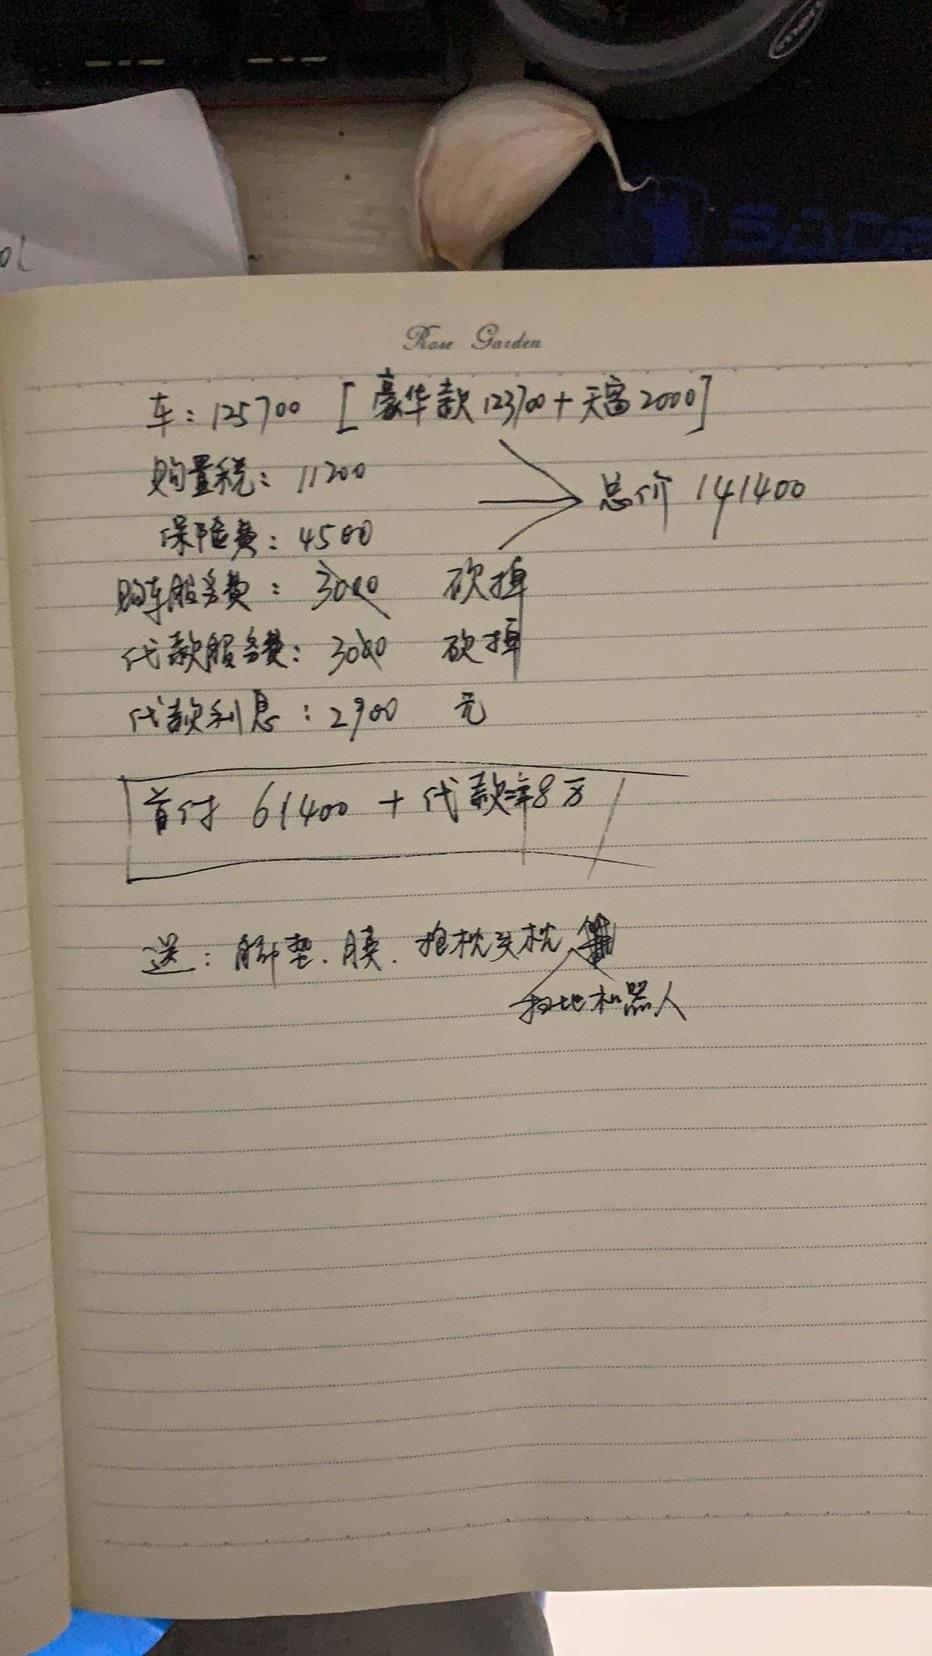 Rose Garden
车：125700 [豪华款123700+天窗2000]
购置税：11200
总价 141400
保险费：4500
购车服务费：3000 砍掉
代款服务费：3000 砍掉
代款利息：2900 元
首付 61400 + 代款率8万
送：脚垫、膜、抱枕头枕
扫地机器人